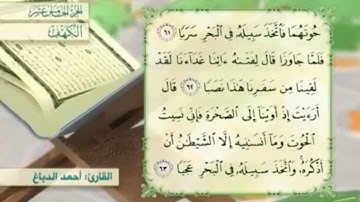 الجزء الخامس عشر
الكهف
حُوتَهُمَا فَاتَّخَذَ سَبِيلَهُ فِي الْبَحْرِ سَرَبًا ٦١
فَلَمَّا جَاوَزَا قَالَ لِفَتَىٰهُ ءَاتِنَا غَدَآءَنَا لَقَدْ
لَقِينَا مِن سَفَرِنَا هَٰذَا نَصَبًا ٦٢ قَالَ
أَرَءَيْتَ إِذْ أَوَيْنَآ إِلَى الصَّخْرَةِ فَإِنِّي نَسِيتُ
الْحُوتَ وَمَآ أَنسَىٰنِيهُ إِلَّا الشَّيْطَٰنُ أَنْ
أَذْكُرَهُ ۚ وَاتَّخَذَ سَبِيلَهُ فِي الْبَحْرِ عَجَبًا ٦٣
القارئ: أحمد الدباغ